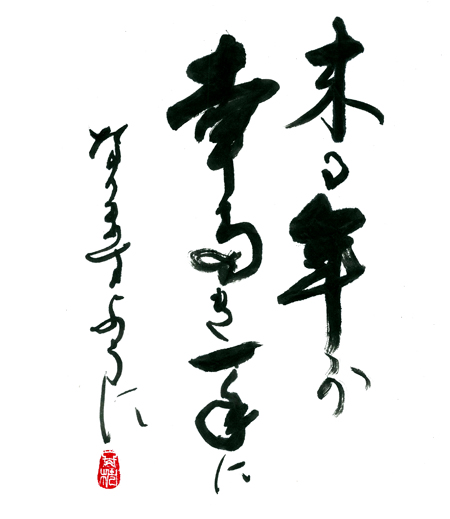 来る年が
幸多き一年に
なりますように